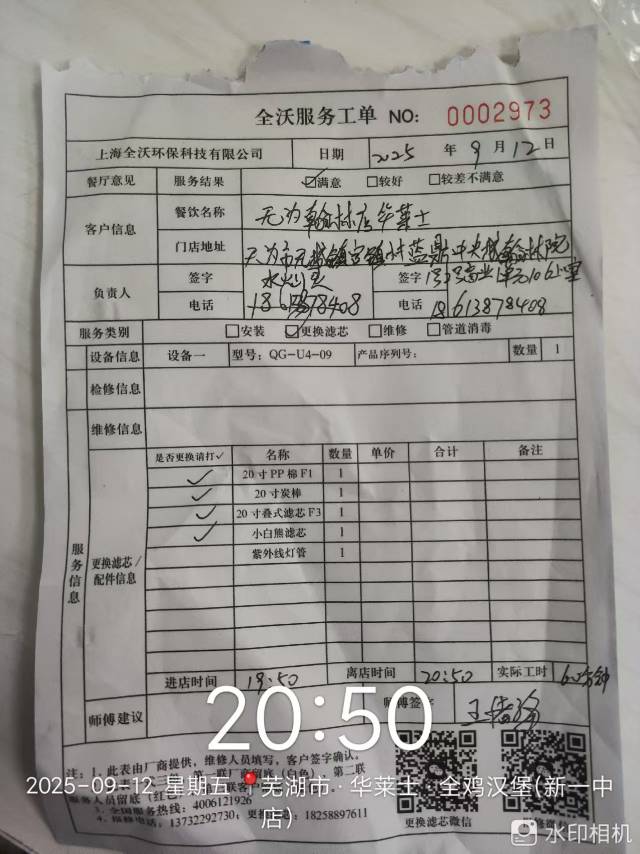 全沃服务工单 NO: 0002973
上海全沃环保科技有限公司 日期 2025 年 9 月 12 日
餐厅意见 服务结果 ☑满意 □较好 □较差不满意
客户信息 餐饮名称 无为翰林店华莱士
门店地址 无为市无城镇 蓝鼎中央城翰林院
负责人 签字 签字
电话 电话 18613878408
服务类别 □安装 ☑更换滤芯 □维修 □管道消毒
设备信息 设备一 型号: QG-U4-09 产品序列号: 数量 1
检修信息
维修信息
服务信息
更换滤芯/配件信息
是否更换请打✓ 名称 数量 单价 合计 备注
✓ 20寸PP棉F1 1
✓ 20寸炭棒 1
✓ 20寸叠式滤芯F3 1
✓ 小白熊滤芯 1
紫外线灯管 1
进店时间 19:50 离店时间 20:50 实际工时 60分钟
师傅建议 师傅签字
20:50
注: 1、此表由厂商提供, 维修人员填写, 客户签字确认。
2025-09-12 星期五 芜湖市·华莱士 · 全鸡汉堡(新一中店)
3、全国服务热线: 4006121926
13732292730; 18258897611
更换滤芯微信
水印相机